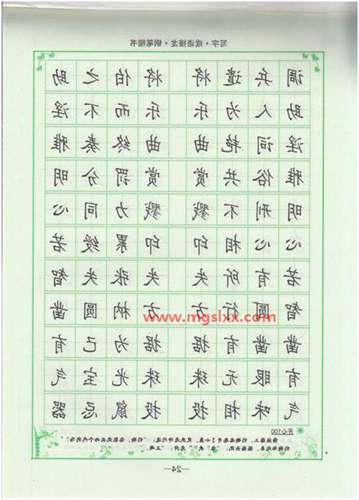 写字·成语接龙·钢笔楷书
调兵遣将 将伯之助
助人为乐 乐而不淫
淫词艳曲 曲终奏雅
雅俗共赏 赏罚分明
明刑不戮 戮力同心
心心相印 印累绶若
若有所失 失张失智
智圆行方 方枘圆凿
www.mgslxx.com
凿凿有据 据为己有
有眼无珠 珠光宝气
气味相投 投鼠忌器
开心100
—24—